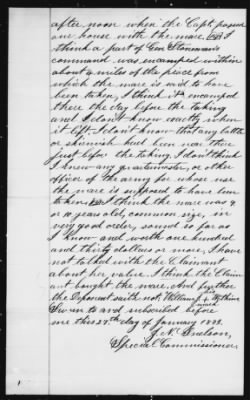 after noon when the Capt passed
our house with the mare, I
think a part of Gen Stoneman's
command was encamped within
about 4 miles of the place from
which the mare is said to have
been taken, I think it encamped
there the day before the taking
and I don't know exactly when
it left. I don't know that any battle
or skirmish had been near there
just before the taking, I don't think
I knew any quartermaster, or other
officer of the army for whose use
the mare is supposed to have been
taken. I think the mare was 9
or 10 years old, common size, in
very good order, sound so far as
I know and worth one hundred
and thirty dollars or more, I have
not talked with the Claimant
about her value. I think the Claim
ant bought the mare. And further
the Deponent saith not. William
Sworn to and subscribed before
me this 27th day of January 188
Special Commissioner.